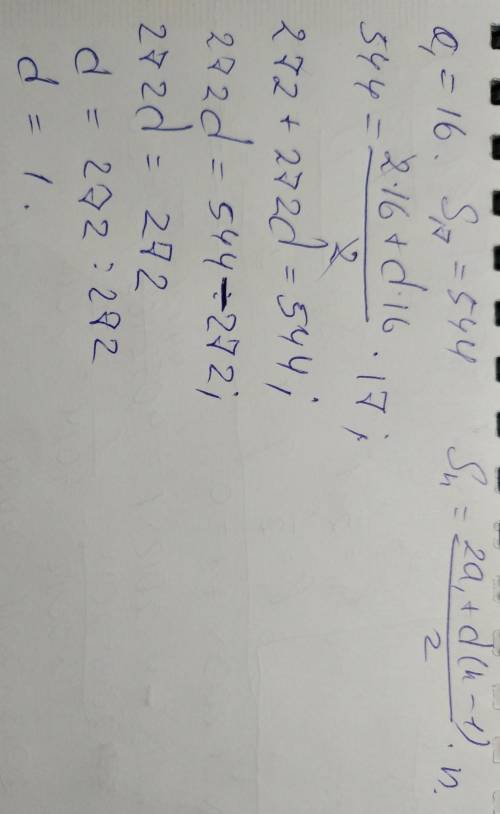 a₁ = 16. S₁₇ = 544 Sₙ = (2a₁ + d(n - 1))/2 · n.
544 = (2·16 + d·16)/2 · 17;
272 + 272d = 544;
272d = 544 - 272;
272d = 272
d = 272 : 272
d = 1.